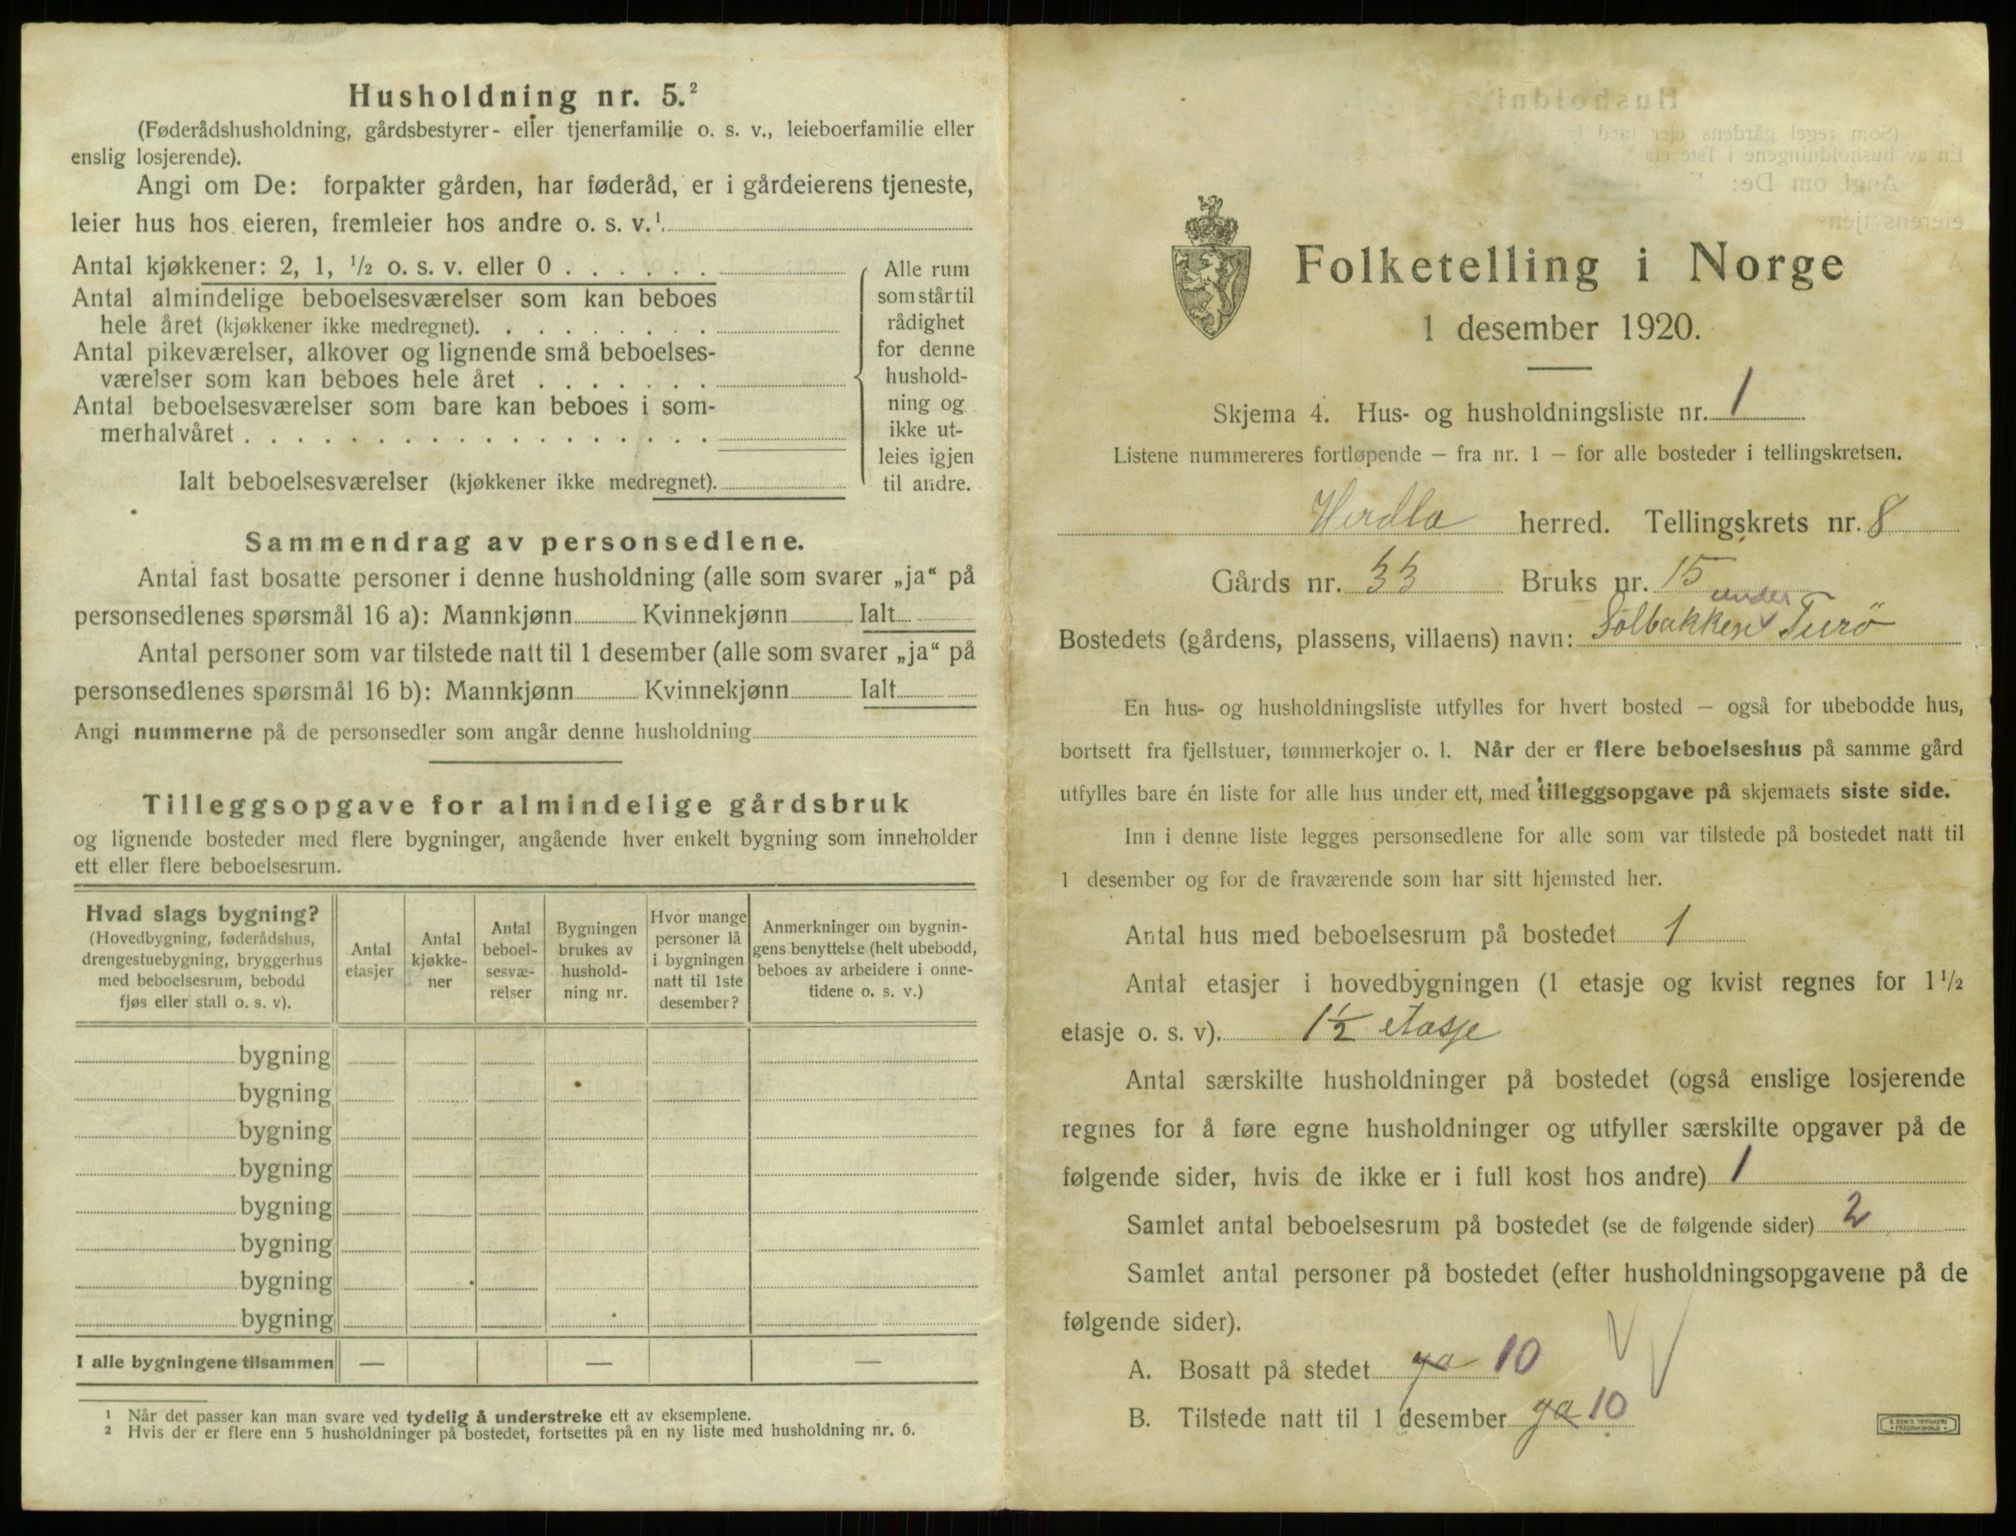 Husholdning nr. 5.²
(Føderådshusholdning, gårdsbestyrer- eller tjenerfamilie o. s. v., leieboerfamilie eller
enslig losjerende).
Angi om De: forpakter gården, har føderåd, er i gårdeierens tjeneste,
leier hus hos eieren, fremleier hos andre o. s. v.¹
Antal kjøkkener: 2, 1, ½ o. s. v. eller 0 . . . . . .
Antal almindelige beboelsesværelser som kan beboes
hele året (kjøkkener ikke medregnet). . . . . . . . . .
Antal pikeværelser, alkover og lignende små beboelses-
værelser som kan beboes hele året . . . . . . .
Antal beboelsesværelser som bare kan beboes i som-
merhalvåret . . . . . . . . . . . . . . . . . .
Ialt beboelsesværelser (kjøkkener ikke medregnet).
Alle rum
som står til
rådighet
for denne
hushold-
ning og
ikke ut-
leies igjen
til andre.
Sammendrag av personsedlene.
Antal fast bosatte personer i denne husholdning (alle som svarer „ja“ på
personsedlenes spørsmål 16 a): Mannkjønn Kvinnekjønn Ialt
Antal personer som var tilstede natt til 1 desember (alle som svarer „ja“ på
personsedlenes spørsmål 16 b): Mannkjønn Kvinnekjønn Ialt
Angi nummerne på de personsedler som angår denne husholdning
Tilleggsopgave for almindelige gårdsbruk
og lignende bosteder med flere bygninger, angående hver enkelt bygning som inneholder
ett eller flere beboelsesrum.
Hvad slags bygning?
(Hovedbygning, føderådshus,
drengestuebygning, bryggerhus
med beboelsesrum, bebodd
fjøs eller stall o. s. v).
Antal
etasjer
Antal
kjøkke-
ner
Antal
beboel-
sesvæ-
relser
Bygningen
brukes av
hushold-
ning nr.
Hvor mange
personer lå
i bygningen
natt til 1ste
desember?
Anmerkninger om bygnin-
gens benyttelse (helt ubebodd,
beboes av arbeidere i onne-
tidene o. s. v.)
bygning
bygning
bygning
bygning
bygning
bygning
bygning
bygning
I alle bygningene tilsammen — — —
¹ Når det passer kan man svare ved tydelig å understreke ett av eksemplene.
² Hvis der er flere enn 5 husholdninger på bostedet, fortsettes på en ny liste med husholdning nr. 6.
Folketelling i Norge
1 desember 1920.
Skjema 4. Hus- og husholdningsliste nr. 1
Listene nummereres fortløpende – fra nr. 1 – for alle bosteder i tellingskretsen.
Herdla herred. Tellingskrets nr. 8
Gårds nr. 33 Bruks nr. 15
under
Bostedets (gårdens, plassens, villaens) navn: Solbakken Turø
En hus- og husholdningsliste utfylles for hvert bosted – også for ubebodde hus,
bortsett fra fjellstuer, tømmerkojer o. l. Når der er flere beboelseshus på samme gård
utfylles bare én liste for alle hus under ett, med tilleggsopgave på skjemaets siste side.
Inn i denne liste legges personsedlene for alle som var tilstede på bostedet natt til
1 desember og for de fraværende som har sitt hjemsted her.
Antal hus med beboelsesrum på bostedet 1
Antal etasjer i hovedbygningen (1 etasje og kvist regnes for 1½
etasje o. s. v). 1½ etasje
Antal særskilte husholdninger på bostedet (også enslige losjerende
regnes for å føre egne husholdninger og utfyller særskilte opgaver på de
følgende sider, hvis de ikke er i full kost hos andre) 1
Samlet antal beboelsesrum på bostedet (se de følgende sider) 2
Samlet antal personer på bostedet (efter husholdningsopgavene på de
følgende sider).
A. Bosatt på stedet ja 10
B. Tilstede natt til 1 desember ja 10